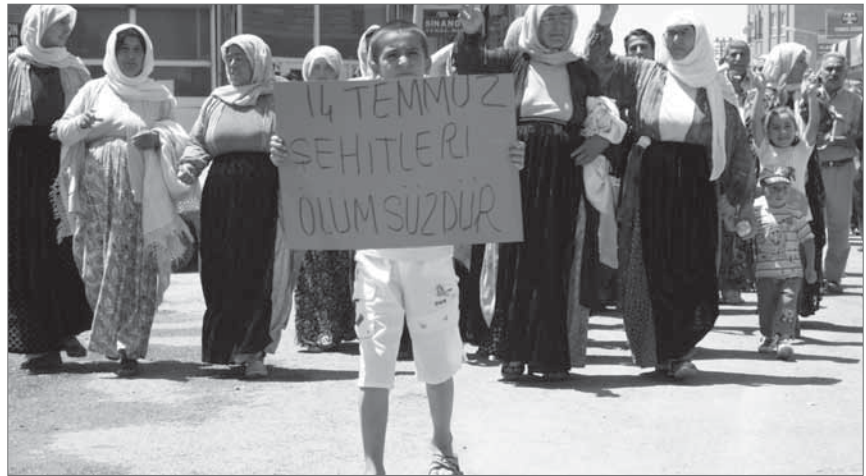 SİNAN
14 TEMMUZ
ŞEHİTLERİ
ÖLÜMSÜZDÜR